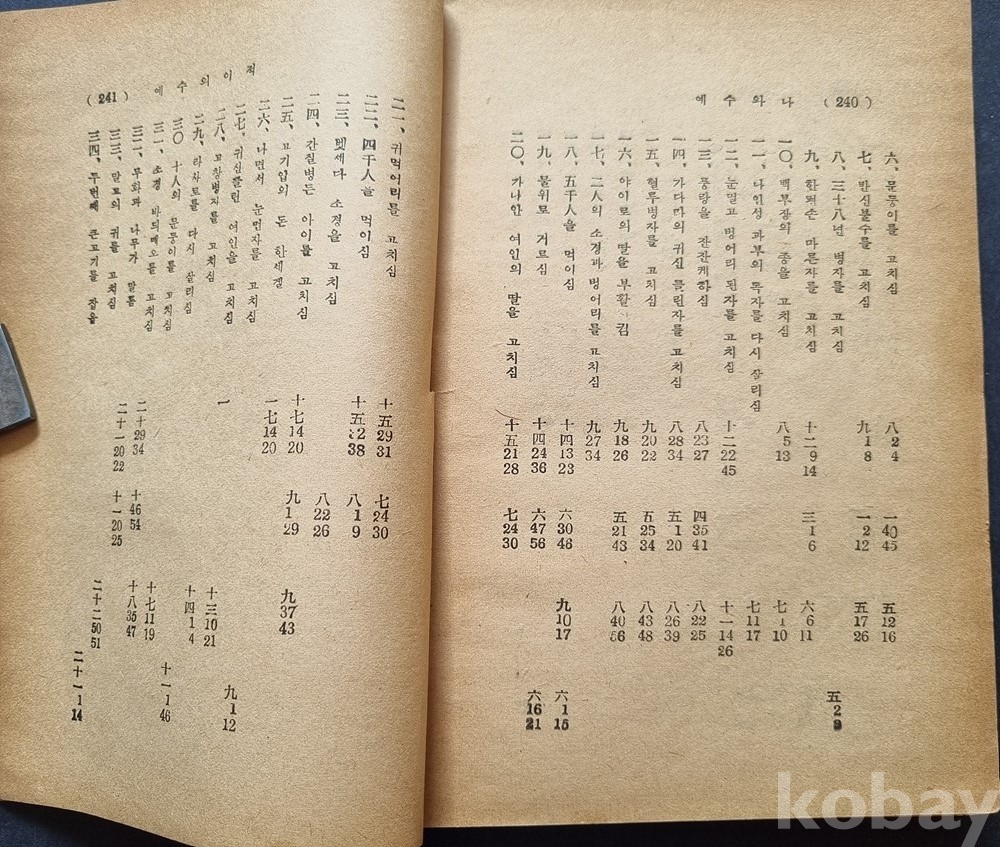 예 수 와 나 (240)
六、문둥이를 고치심 八 2 4 一 40 45 五 12 16
七、반신불수를 고치심 九 1 8 一 2 12 五 17 26
八、三十八년 병자를 고치심 五 2 9
九、한편손 마른자를 고치심 十二 9 14 三 1 6 六 6 11
一〇、백부장의 종을 고치심 八 5 13 七 1 10
一一、나인성 과부의 독자를 다시 살리심 七 11 17
一二、눈멀고 벙어리 된자를 고치심 十二 22 45 十一 14 26
一三、풍랑을 잔잔케하심 八 23 27 四 35 41 八 22 25
一四、가다라의 귀신 들린자를 고치심 八 28 34 五 1 20 八 26 39
一五、혈루병자를 고치심 九 20 22 五 25 34 八 43 48
一六、야이로의 딸을 부활 김 九 18 26 五 21 43 八 40 56
一七、二인의 소경과 벙어리를 고치심 九 27 34
一八、五千人을 먹이심 十四 13 23 六 30 46 九 10 17 六 1 15
一九、물위로 거르심 十四 24 36 六 47 56 六 16 21
二〇、가나안 여인의 딸을 고치심 十五 21 28 七 24 30
(241) 예 수 의 이 적
二一、귀먹어리를 고치심 十五 29 31 七 24 30
二二、四千人을 먹이심 十五 32 38 八 1 9
二三、벳세다 소경을 고치심 八 22 26
二四、간질병든 아이를 고치심 十七 14 20 九 1 29 九 37 43
二五、고기입의 돈 한세겔 一七 14 20
二六、나면서 눈먼자를 고치심 九 1 12
二七、귀신들린 여인을 고치심 一 十三 10 21
二八、고창병자를 고치심 十四 1 4
二九、라사로를 다시 살리심 十一 1 46
三〇、十人의 문둥이를 고치심 十七 11 19
三一、소경 바듸매오를 고치심 二十 29 34 十 46 54 十八 35 47
三二、무화과 나무가 말름 二十一 20 22 十一 20 25
三三、말고의 귀를 고치심 二十二 50 51
三四、두번째 큰고기를 잡음 二十一 1 14
kobay